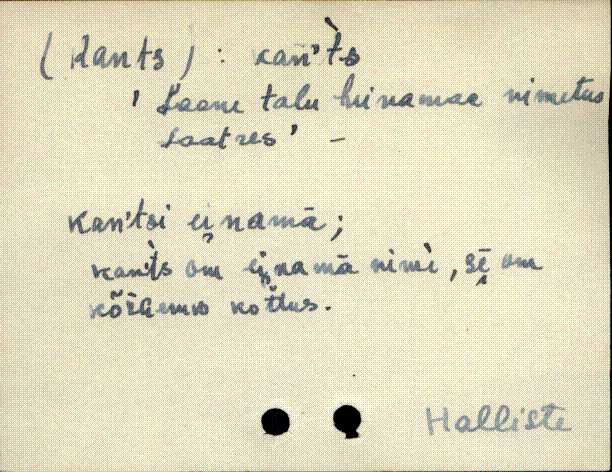 (Kants) : kan'̀ts
'Laane talu heinamaa nimetus
Laatres' –
kan'tsi ei̯namā;
kan'̀ts om ei̯namā nimì, sē̬ om
kotus.
Halliste